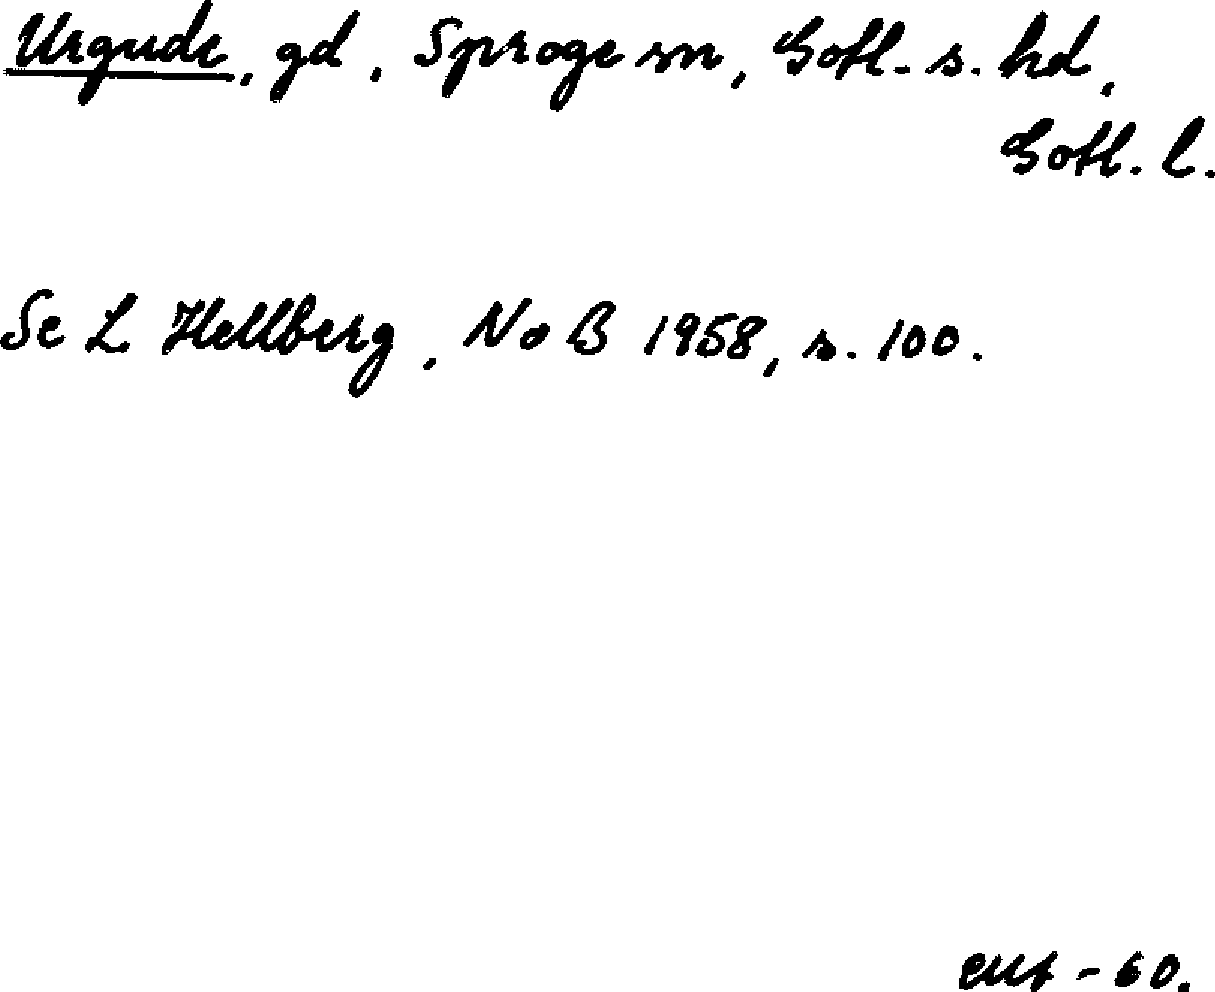 Urgude, gd, Sproge sn, Gotl. s. hd,
Gotl. l.
Se L Hellberg, NoB 1958, s. 100.
-60.